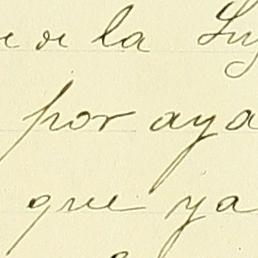 de la
por aya
que ya